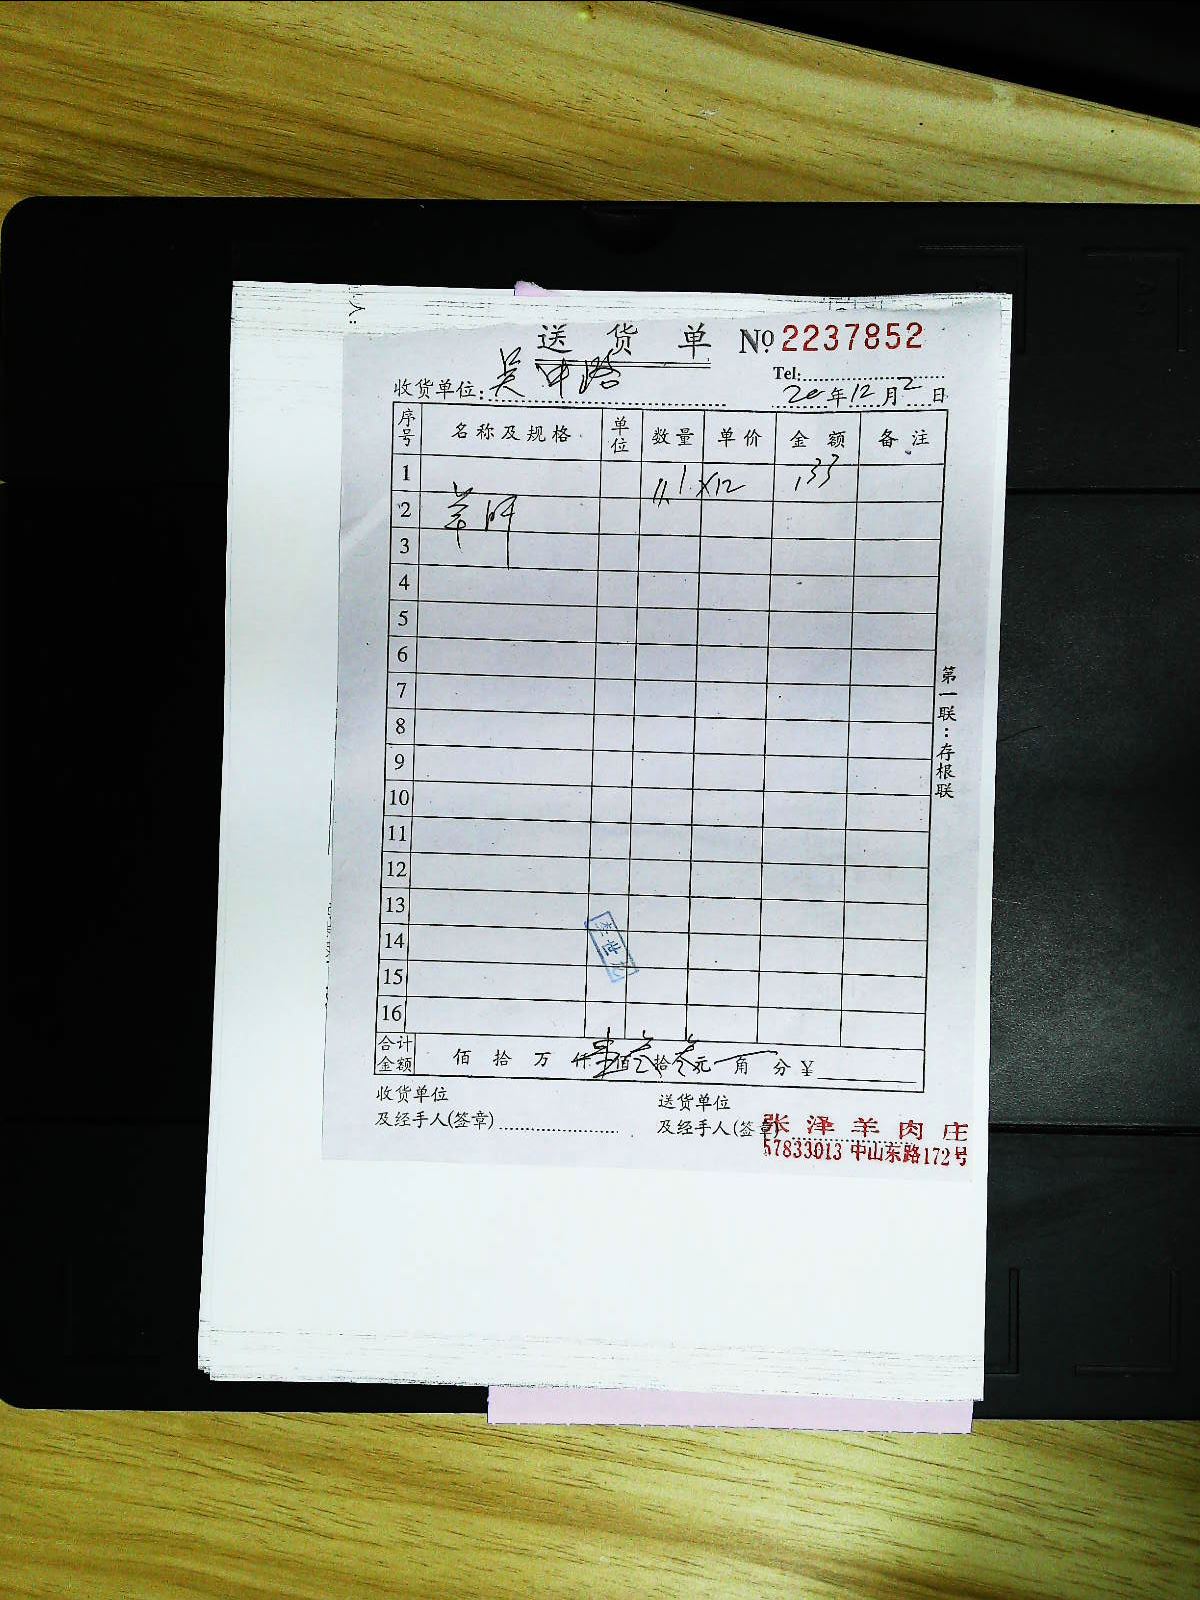 送货单 № 2237852
Tel:
收货单位: 吴中路 20年12月2日
序号 名称及规格 单位 数量 单价 金额 备注
1 11.1 ×12 133
2 羊肝
3
4
5
6
7
8
9
10
11
12
13
14
15
16
第一联:存根联
合计金额 佰拾万仟壹佰叁拾叁元角分¥
收货单位 送货单位
及经手人(签章) 及经手人(签章)
张泽羊肉庄
57833013 中山东路172号